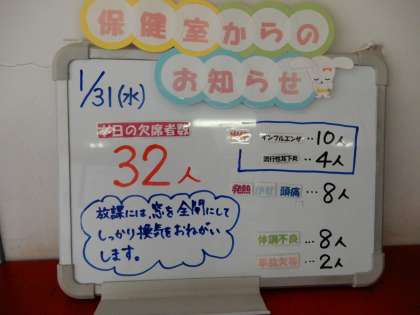 保健室からの
お知らせ
1/31(水)
本日の欠席者数
32人
インフルエンザ…10人
流行性耳下炎…4人
発熱 頭痛…8人
体調不良…8人
…2人
放課には、窓を全開にして
しっかり換気をおねがい
します。